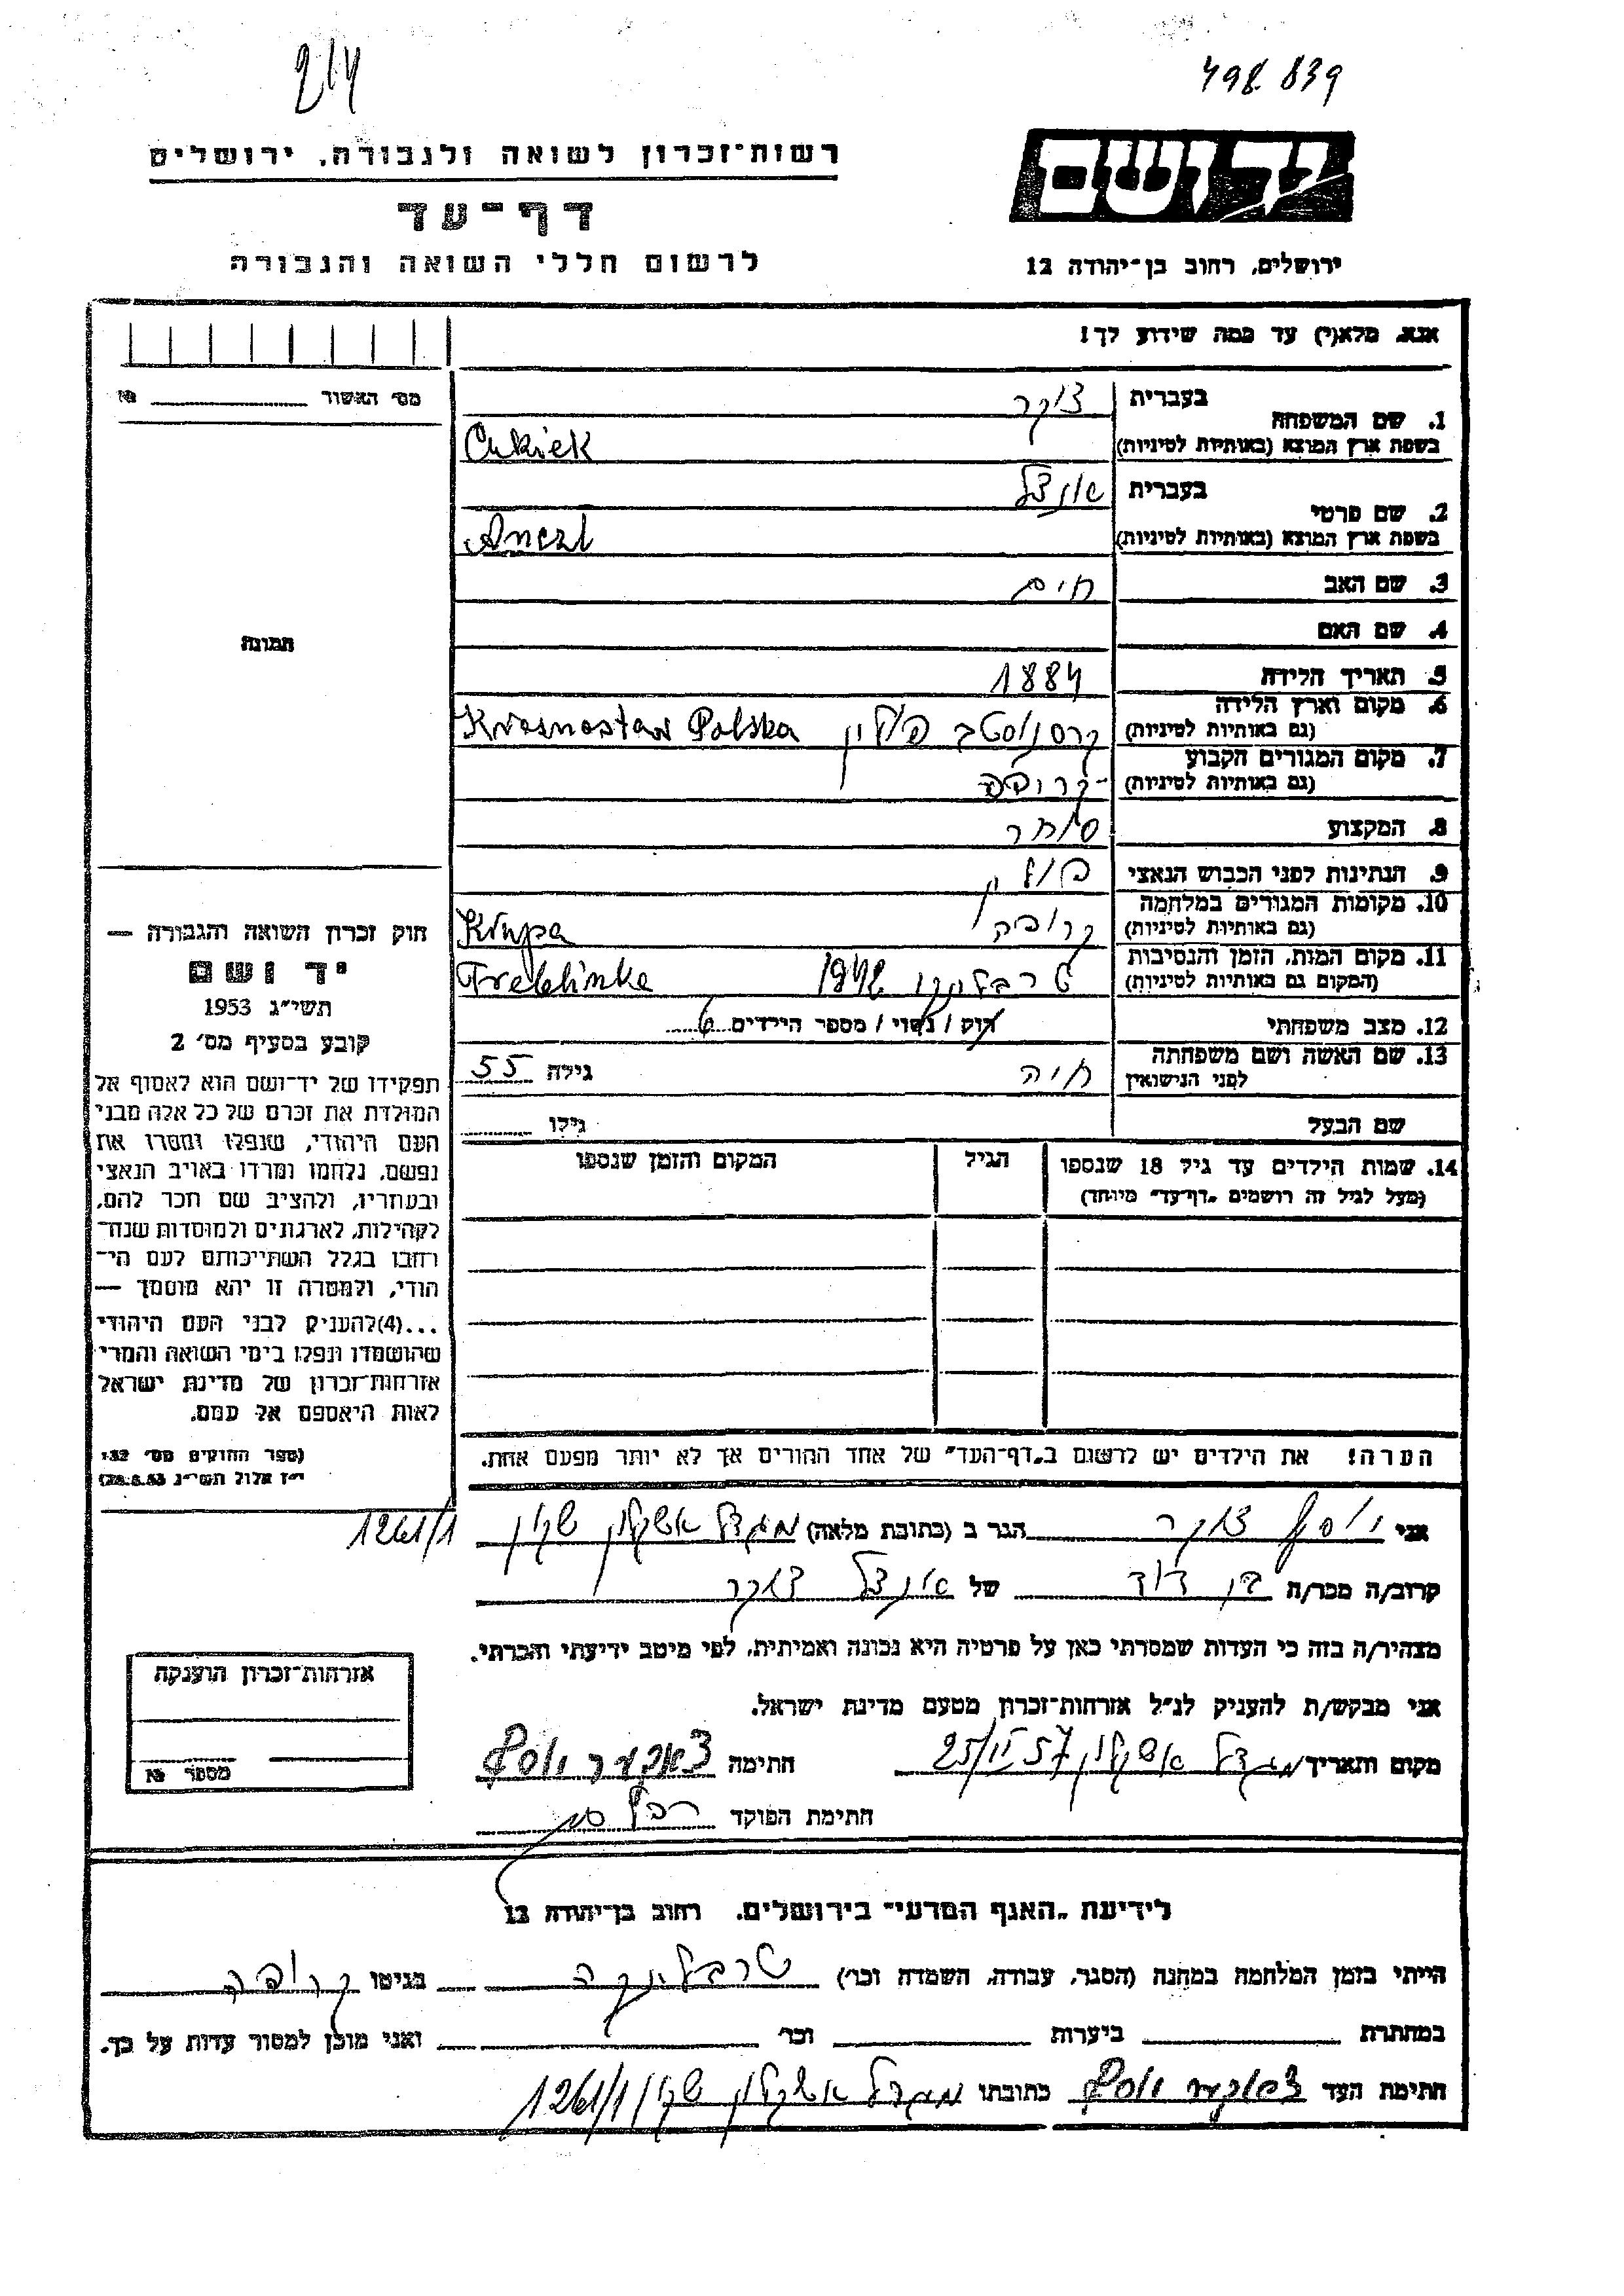 214
498.839
רשות־זכרון לשואה ולגבורה. ירושלים
יד ושם
דף־עד
לרשום חללי השואה והגבורה
ירושלים, רחוב בן־יהודה 12
אנא, מלא(י) עד כמה שידוע לך!
מס׳ האשור № 
1. שם המשפחה בעברית צוקר
בשפת ארץ המוצא (באותיות לטיניות) Cukiek
2. שם פרטי בעברית אנצל
בשפת ארץ המוצא (באותיות לטיניות) Anczl
3. שם האב חים
4. שם האם
תמונה
5. תאריך הלידה 1884
6. מקום וארץ הלידה (גם באותיות לטיניות) קרסנוסטב פולין Krasnostaw Polska
7. מקום המגורים הקבוע (גם באותיות לטיניות) קרופה
8. המקצוע סוחר
9. הנתינות לפני הכבוש הנאצי פולין
10. מקומות המגורים במלחמה (גם באותיות לטיניות) קרופה Krupa
11. מקום המות, הזמן והנסיבות (המקום גם באותיות לטיניות) טרבלינקו 1942 Treblinke
12. מצב משפחתי רוק / נשוי / מספר הילדים 6
13. שם האשה ושם משפחתה לפני הנישואין חיה גילה 55
שם הבעל גילו
14. שמות הילדים עד גיל 18 שנספו הגיל המקום והזמן שנספו
(מעל לגיל זה רושמים „דף־עד״ מיוחד)
חוק זכרון השואה והגבורה —
יד ושם
תשי״ג 1953
קובע בסעיף מס׳ 2
תפקידו של יד־ושם הוא לאסוף אל
המולדת את זכרם של כל אלה מבני
העם היהודי, שנפלו ומסרו את
נפשם, נלחמו ומרדו באויב הנאצי
ובעוזריו, ולהציב שם וזכר להם,
לקהילות, לארגונים ולמוסדות שנח־
רבו בגלל השתייכותם לעם הי־
הודי, ולמטרה זו יהא מוסמך —
...(4)להעניק לבני העם היהודי
שהושמדו ונפלו בימי השואה והמרי
אזרחות־זכרון של מדינת ישראל
לאות היאספם אל עמם.
(ספר החוקים מס׳ 132
י״ז אלול תשי״ג 28.8.53)
הערה! את הילדים יש לרשום ב„דף־העד״ של אחד ההורים אך לא יותר מפעם אחת.
אני יוסף צוקר הגר ב (כתובת מלאה) מגדל אשקלון שכון 1261/1
קרוב/ה מכר/ה בן דוד של אנצל צוקר
מצהיר/ה בזה כי העדות שמסרתי כאן על פרטיה היא נכונה ואמיתית, לפי מיטב ידיעתי והכרתי.
אני מבקש/ת להעניק לנ״ל אזרחות־זכרון מטעם מדינת ישראל.
מקום ותאריך מגדל אשקלון 25/II 57 חתימה צוקער יוסף
חתימת הפוקד
אזרחות־זכרון הוענקה
מספר №
לידיעת „האגף המדעי״ בירושלים. רחוב בן־יהודה 12
הייתי בזמן המלחמה במחנה (הסגר, עבודה, השמדה וכו׳) טרבלינקה בגיטו קרופה
במחתרת ביערות וכו׳ ואני מוכן למסור עדות על כך.
חתימת העד צוקער יוסף כתובתו מגדל אשקלון שכון 1261/1